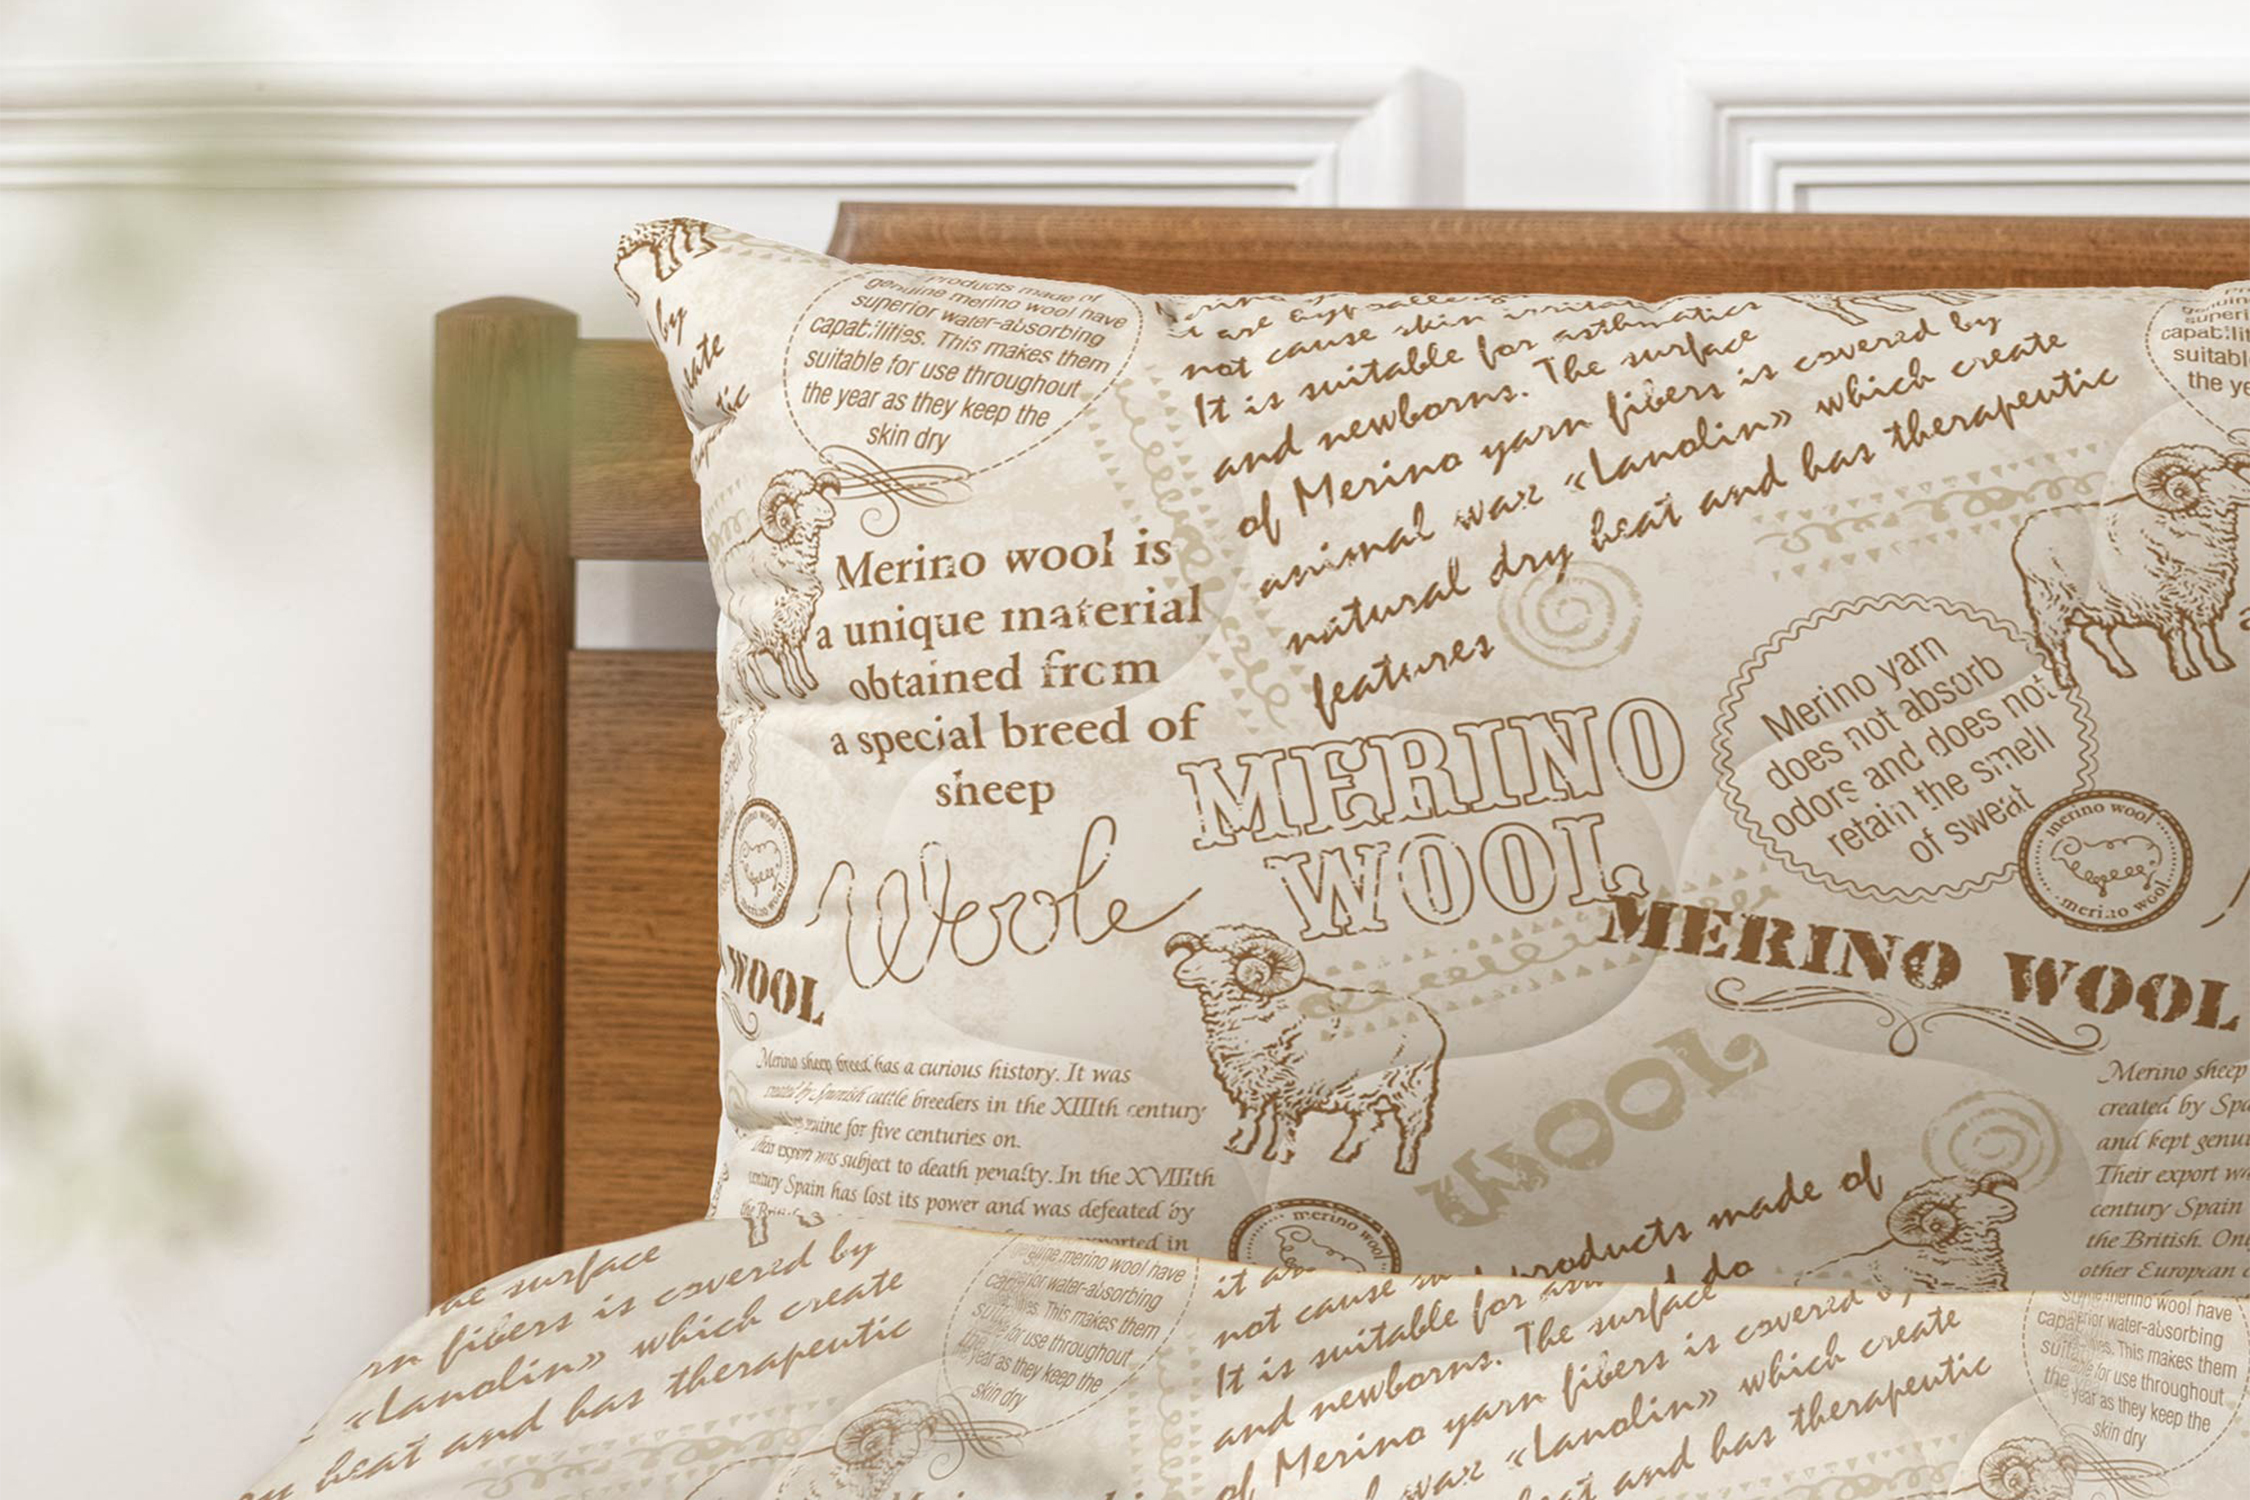 by
products made of
genuine merino wool have
superior water-absorbing
capabilities. This makes them
suitable for use throughout
the year as they keep the
skin dry
not cause skin irritation
It is suitable for asthmatics
and newborns. The surface
of Merino yarn fibers is covered by
animal wax «Lanolin» which create
natural dry heat and has therapeutic
features
superi
capabilit
suitabl
the ye
Merino wool is
a unique material
obtained from
a special breed of
sheep
Merino yarn
does not absorb
odors and does not
retain the smell
of sweat
MERINO
WOOL
Woole
merino wool
merino wool
merino wool
MERINO WOOL
WOOL
WOOL
Merino sheep breed has a curious history. It was
created by Spanish cattle breeders in the XIIIth century
genuine for five centuries on.
Their export was subject to death penalty. In the XVIIIth
century Spain has lost its power and was defeated by
the British
exported in
Merino sheep
created by Spa
and kept genu
Their export wa
century Spain
the British. Onl
other European c
merino wool
products made of
do
surface
fibers is covered by
«Lanolin» which create
heat and has therapeutic
genuine merino wool have
superior water-absorbing
capabilities. This makes them
suitable for use throughout
the year as they keep the
skin dry
it are
not cause
It is suitable for
and newborns. The surface
of Merino yarn fibers is covered by
wax «Lanolin» which create
heat and has therapeutic
merino wool have
superior water-absorbing
This makes them
suitable for use throughout
the year as they keep the
skin dry